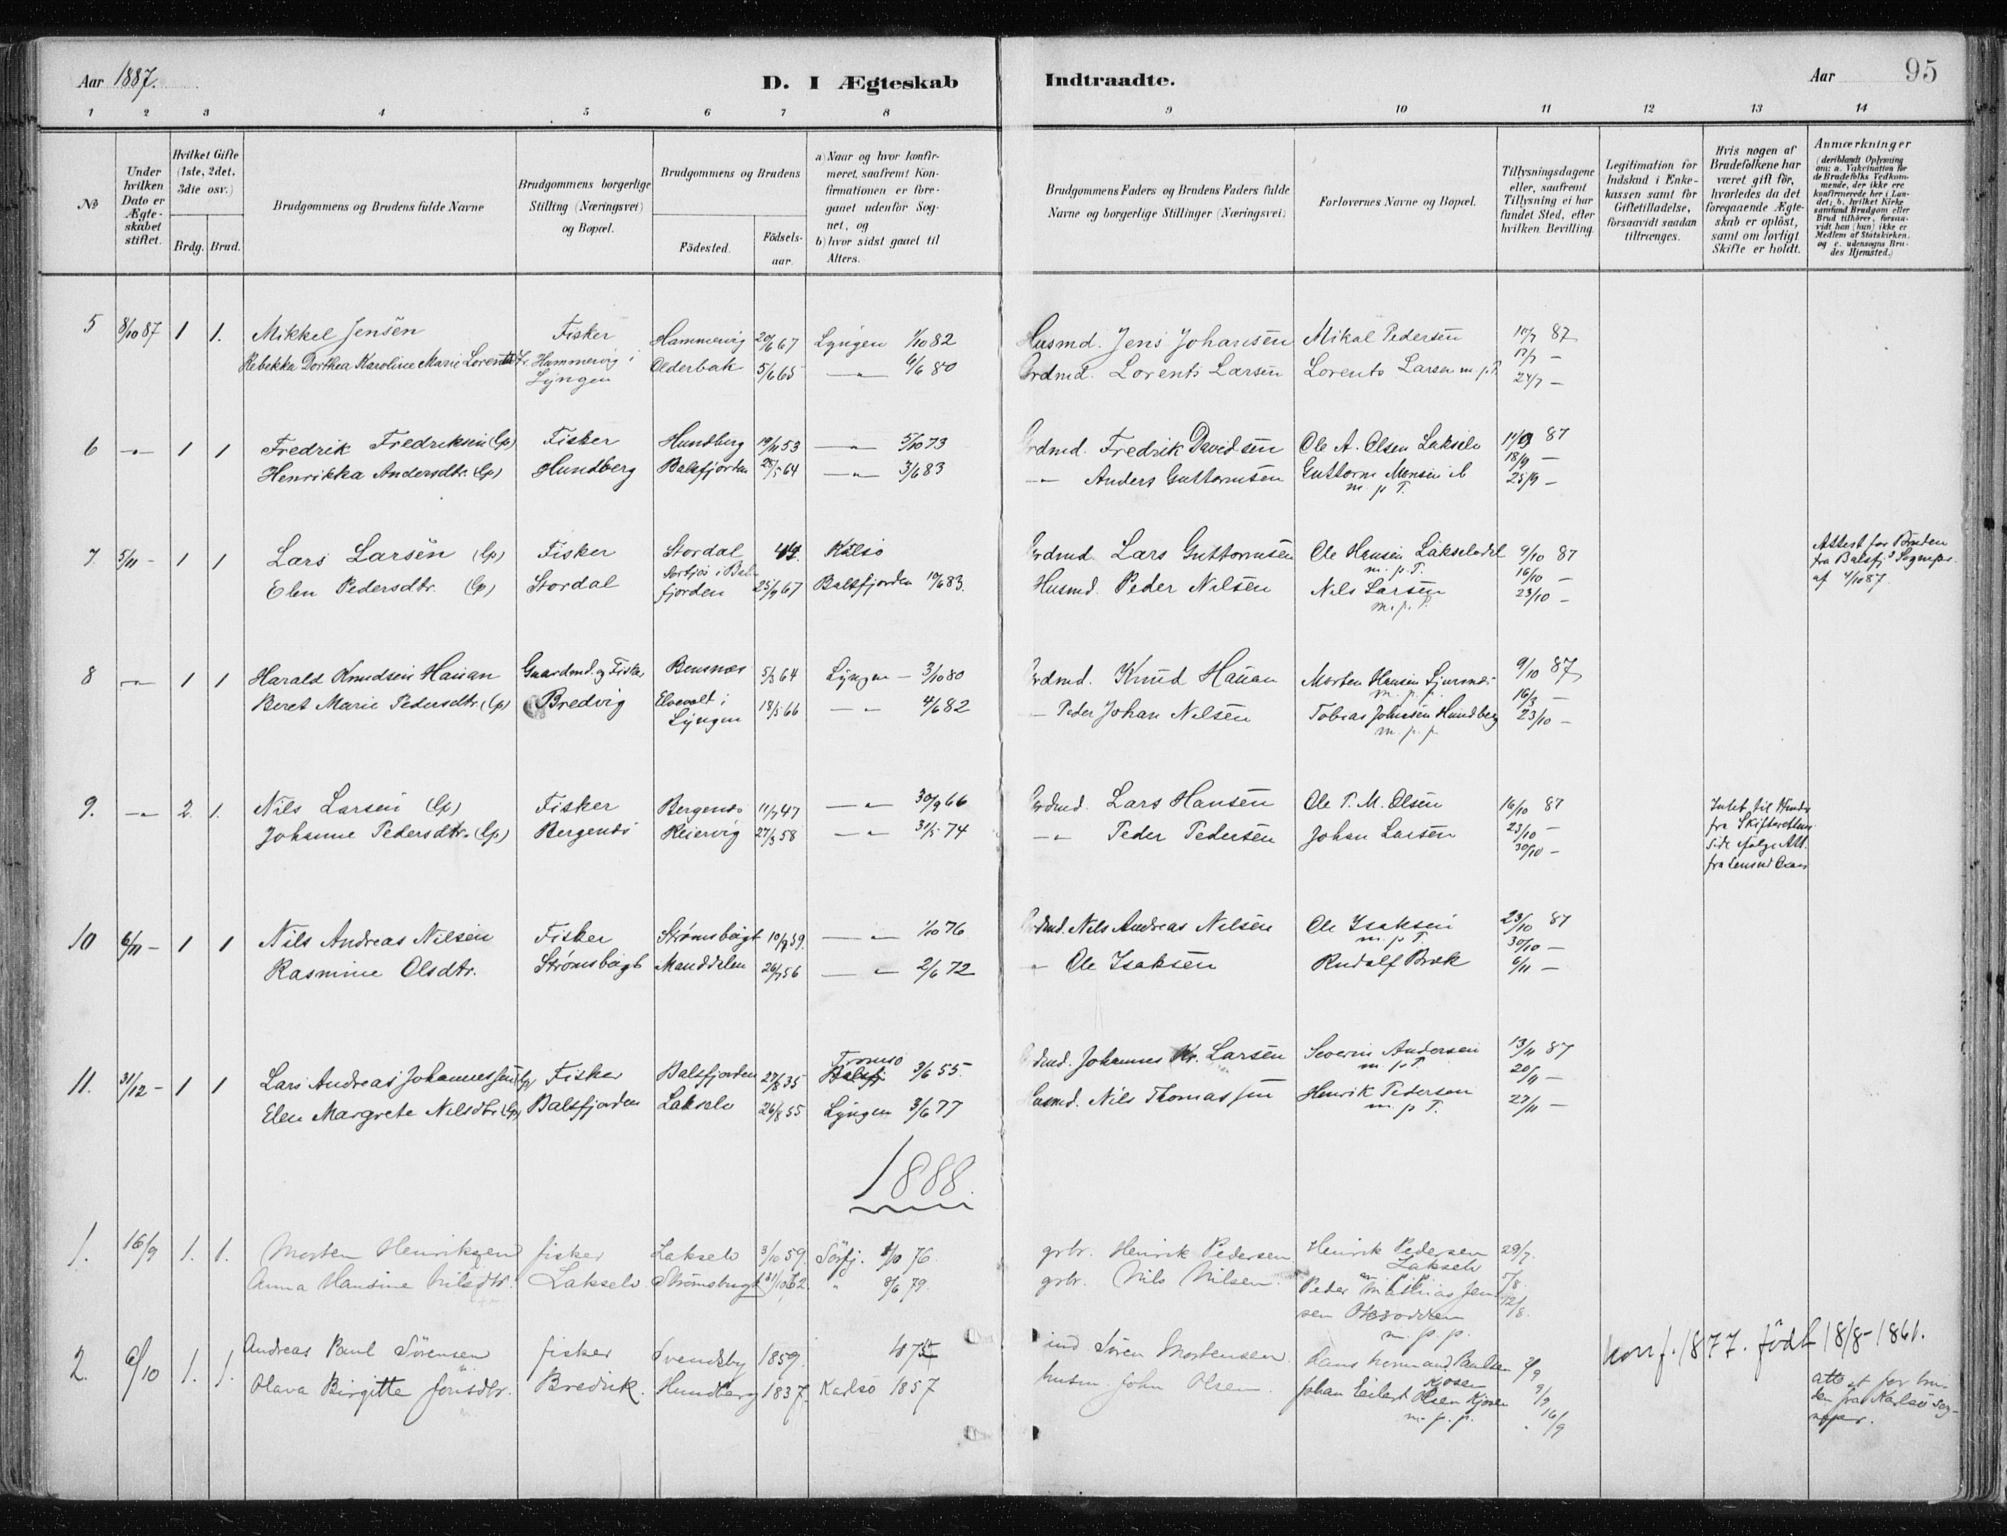 Aar 1887.
D. I Ægteskab Indtraadte.
Aar 95
1 2 3 4 5 6 7 8 9 10 11 12 13 14
№
Under hvilken Dato er Ægteskabet stiftet.
Hvilket Gifte (1ste, 2det, 3die osv.)
Brdg. Brud.
Brudgommens og Brudens fulde Navne
Brudgommens borgerlige Stilling (Næringsvei) og Bopæl.
Brudgommens og Brudens
Födested. Födselsaar.
a) Naar og hvor konfirmeret, saafremt Konfirmationen er foregaaet udenfor Sognet, og
b) hvor sidst gaaet til Alters.
Brudgommens Faders og Brudens Faders fulde Navne og borgerlige Stillinger (Næringsvei)
Forlovernes Navne og Bopæl.
Tillysningsdagene eller, saafremt Tillysning ei har fundet Sted, efter hvilken Bevilling.
Legitimation for Indskud i Enkekassen samt for Giftetilladelse, forsaavidt saadan tiltrænges.
Hvis nogen af Brudefolkene har været gift för, hvorledes da det foregaaende Ægteskab er oplöst, samt om lovligt Skifte er holdt.
Anmærkninger (deriblandt Oplysning om: a. Vakcination for de Brudefolks Vedkommende, der ikke ere konfirmerede her i Landet; b. hvilket Kirkesamfund Brudgom eller Brud tilhörer, forsaavidt han (hun) ikke er Medlem af Statskirken, og c. udensogns Brudes Hjemsted.)
5 8/10 87 1 1. Mikkel Jensen Fisker Hammervig 20/6 67 Lyngen 1/10 82 Husmd. Jens Johansen Mikal Pedersen 10/7 87
Rebekka Dorthea Karoline Marie Lorentsdtr. Hammervig i Lyngen Olderbak 5/6 65 — " — 6/6 80 Grdmd. Lorents Larsen Lorents Larsen m.p.T. 17/7 —
24/7 —
6 — " — 1 1 Fredrik Fredriksen (Lp) Fisker Hundberg 19/11 53 — " — 5/10 73 Grdmd. Fredrik Davidsen Ole A. Olsen Lakselv 11/9 87
Henrikka Andersdtr. (Lp) Hundberg Balsfjorden 28/5 64 — " — 3/6 83 — " — Anders Guttormsen Guttorm Monsen ib m. p T. 18/9 —
25/9 —
7 5/11 - 1 1 Lars Larsen (Lp) Fisker Stordal 44. Karlsö Grdmd. Lars Guttormsen Ole Hansen Lakselvdal m. p. T. 9/10 87 Attest for Bruden
Elen Pedersdtr. (Lp) Stordal i Balsfjorden 25/9 67 Balsfjorden 10/6 83. Husmd. Peder Nilsen Nils Larsen m. p. T. 16/10 — fra Balsfj. Sognepr.
23/10 — af 4/10 87.
8 — " — 1 1 Harald Knudsen Hauan Gaardmd. og Fisker Bensnæs 5/3 64 Lyngen — 3/10 80 Grdmd. Knud Hauan Morten Hansen m. p. p. 9/10 87
Beret Marie Pedersdtr. (Lp) Bredvig Elvevolt i Lyngen 18/5 66 — " — 4/6 82 — Peder Johan Nilsen Tobias Johnsen Hundberg m. p. p 16/3 —
23/10 —
9. — " — 2 1. Nils Larsen (Lp) Fisker Bergenes 11/7 47 — " — 30/9 66 Grdmd. Lars Hansen Ole P. M. Olsen 16/10 87
Johanne Pedersdtr. (Lp) Bergenes Reiervig 27/3 58 — " — 31/5 74 — " — Peder Pedersen Johan Larsen 23/10 —
30/10 —
Intet til Hinder
fra Skifterettens
Side ifølge Att.
10 6/11 - 1 1 Nils Andreas Nilsen Fisker Strømsbugt 10/9 59. — " — 1/10 76 Grdmd. Nils Andreas Nilsen Ole Isaksen m. p T. 23/10 87
Rasmine Olsdtr. Strømsbugt Manddelen 26/7 56 — " — 2/6 72 " Ole Isaksen Rudolf Brok 30/10 —
6/11 —
11. 31/12 - 1 1 Lars Andreas Johannessen Fisker Balsfjorden 27/8 35 Tromsö 3/6 55. Grdmd. Johannes Kr. Larsen Severin Andersen m. p T. 13/11 87
Elen Margrete Nilsdtr. (Lp) Balsfjorden Lakselv 26/8 55 Lyngen 3/6 77 Husmd. Nils Thomassen Henrik Pedersen m. p T. 20/11 —
27/11 —
1888.
1. 16/9 1. 1. Morten Henriksen fisker Lakselv 3/10 59. Sørfj. 8/10 76. grbr. Henrik Pedersen Henrik Pedersen Lakselv 29/7.
Anna Hansine Nilsdtr. Lakselv Strømsbugt 31/10 62. " 8/6 79. grbr. Nils Nilsen. Peder Mathias Jensen 5/8.
m. p. p. 12/8.
2. 6/10 1. 1. Andreas Paul Sörensen fisker Svendsby 1859. 1875 ind Sören Mortensen. Hans Normand Paulsen Kjosen 2/9 konf. 1877. födt 18/8 - 1861.
Olava Birgitte Jonsdtr. Bredvik. Hundberg 1837. Karlsö 1857 husm. John Olsen. Johan Eilert Olsen Kjosen m. p. p. 9/9
16/9
attest for bruden fra Karlsö sogne